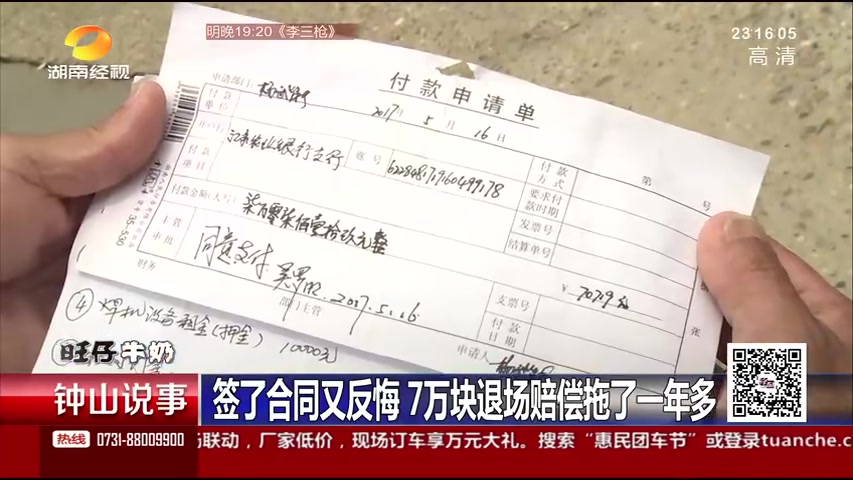 明晚19:20《李三枪》
23:16:05
高清
湖南经视
付款申请单
申请部门:
2017年 5月 16日
第 号
付款单位
开户行
江南农山银行支行
账号
付款方式
付款项目
要求付款时期
发票号
付款金额(大写)
柒万零柒佰壹拾玖元整
结算单号
¥ 70719元
主管审批
同意支付
2017.5.16
支票号
财务
部门主管
付款日期
申请人
张
35-530
④ 焊机设备租金(押金) 10000元
旺仔牛奶
钟山说事
签了合同又反悔 7万块退场赔偿拖了一年多
热线 0731-88009900
联动，厂家低价，现场订车享万元大礼。搜索“惠民团车节”或登录tuanche.c